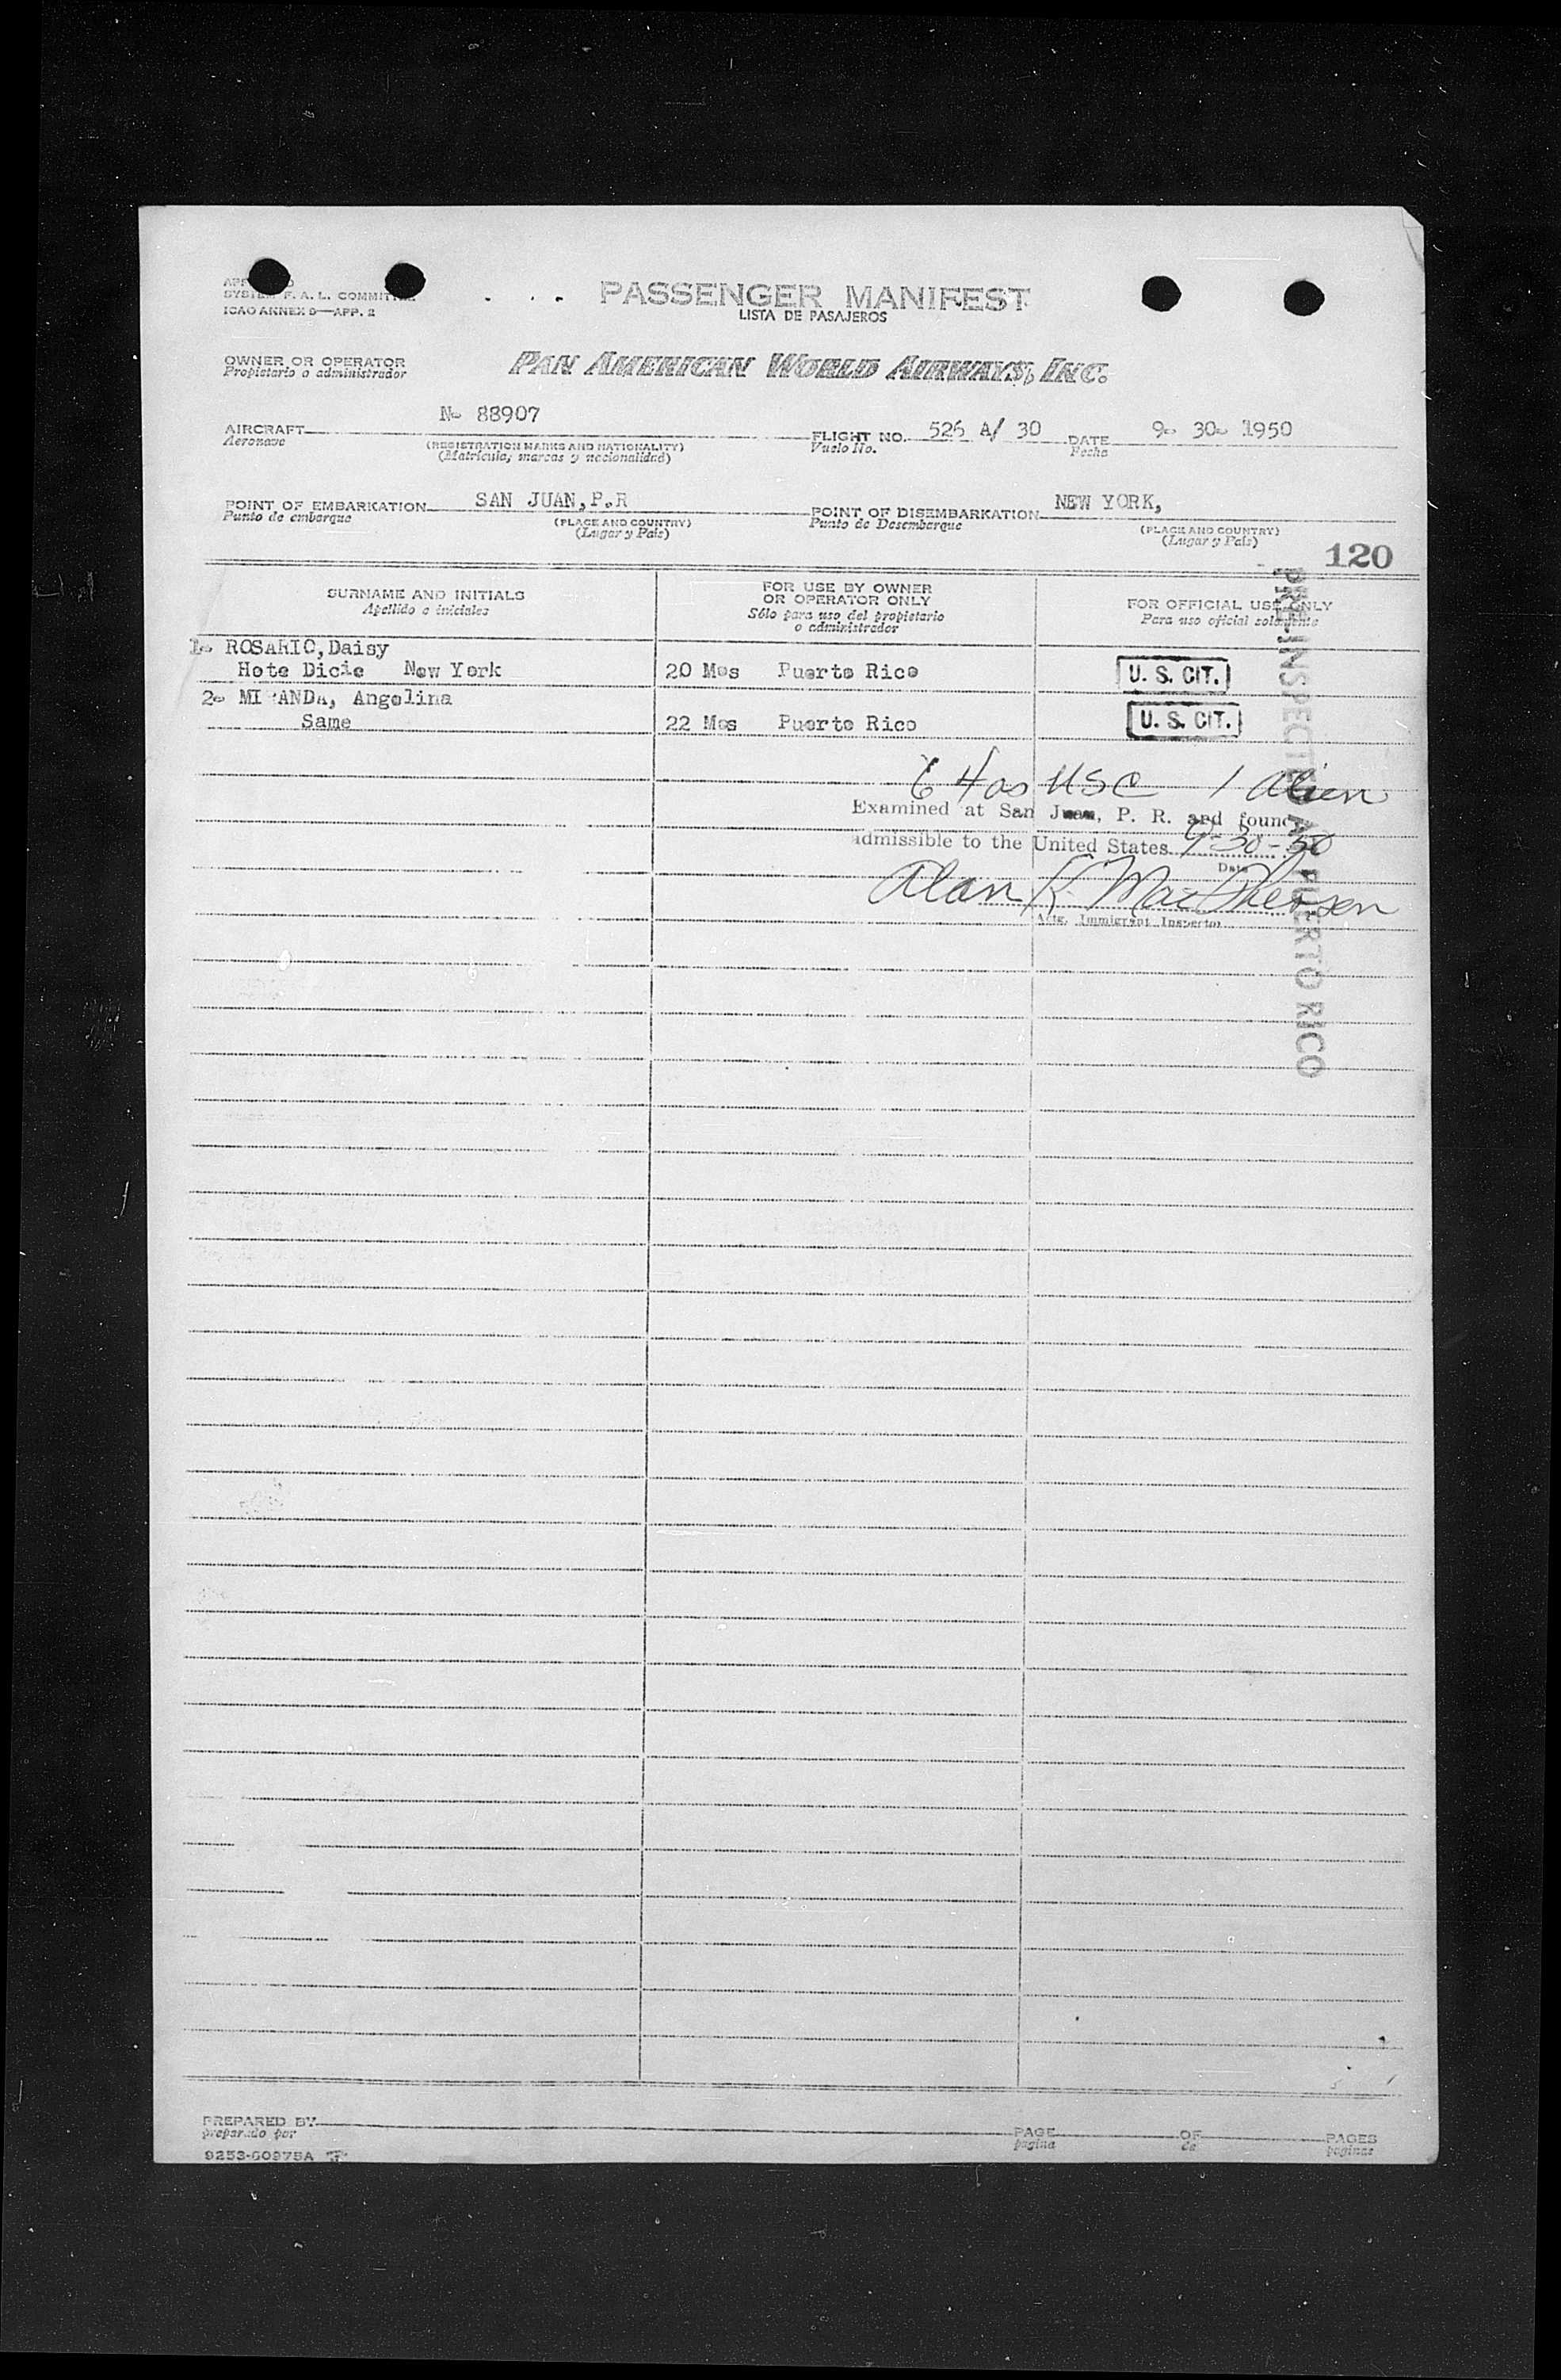 SYSTEM F. A. L. COMMITTEE
ICAO ANNEX 9—APP. 2
PASSENGER MANIFEST
LISTA DE PASAJEROS
OWNER OR OPERATOR
Propietario o administrador
PAN AMERICAN WORLD AIRWAYS, INC.
AIRCRAFT N- 88907
Aeronave
(REGISTRATION MARKS AND NATIONALITY)
(Matrícula, marcas y nacionalidad)
FLIGHT NO. 526 A/ 30 DATE 9- 30- 1950
Vuelo No. Fecha
POINT OF EMBARKATION SAN JUAN,P.R
Punto de embarque
(PLACE AND COUNTRY)
(Lugar y País)
POINT OF DISEMBARKATION NEW YORK,
Punto de Desembarque
(PLACE AND COUNTRY)
(Lugar y País)
120
SURNAME AND INITIALS
Apellido e iniciales
FOR USE BY OWNER
OR OPERATOR ONLY
Sólo para uso del propietario
o administrador
FOR OFFICIAL USE ONLY
Para uso oficial solamente
1- ROSARIO,Daisy
Hote Dicie New York 20 Mos Puerto Rico U. S. CIT.
2- MI ANDA, Angelina
Same 22 Mos Puerto Rico U. S. CIT.
PRE-INSPECTED AT PUERTO RICO
64 as USC 1 Alien
Examined at San Juan, P. R. and found
admissible to the United States 9-30-50
Date
Alan K. MacPherson
Actg. Immigrant Inspector
PREPARED BY
preparado por
PAGE OF PAGES
página de páginas
9253-60975A